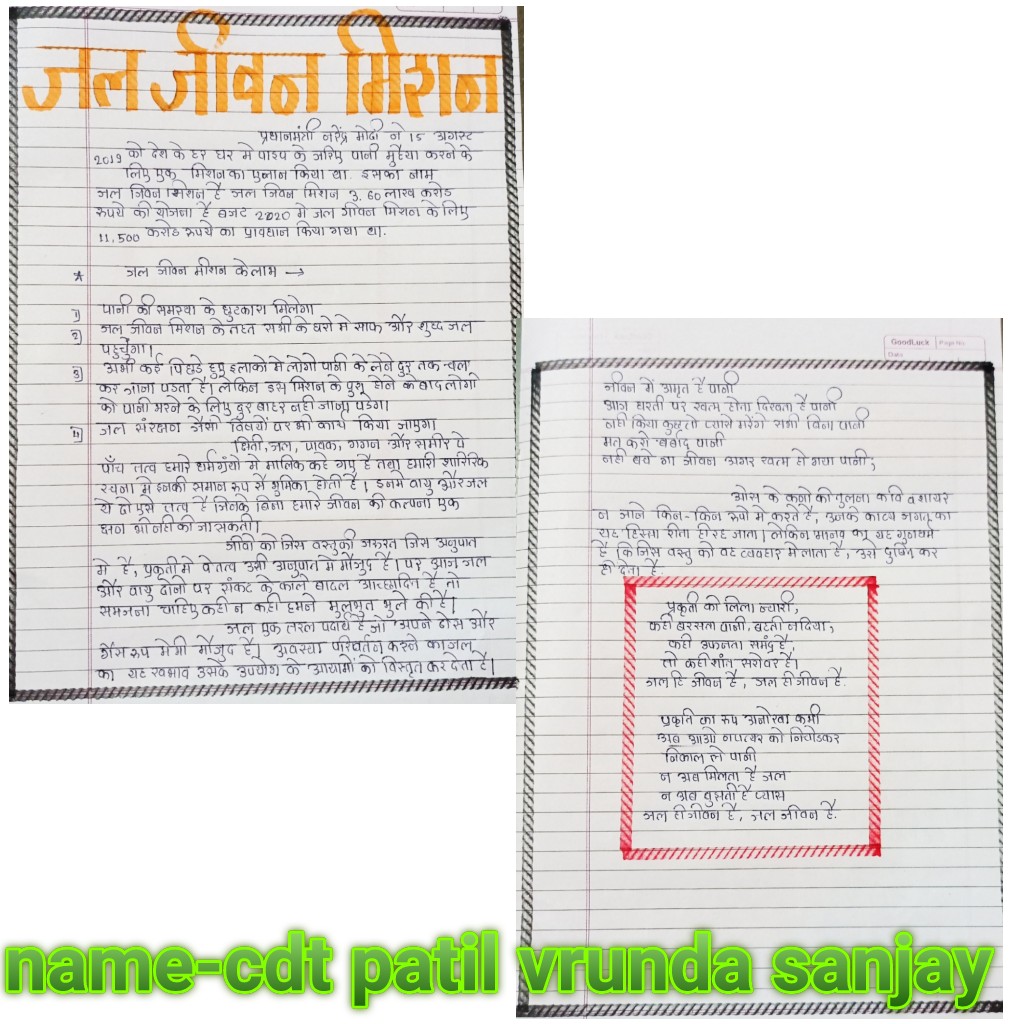 जल जीवन मिशन
प्रधानमंत्री नरेंद्र मोदी ने 15 अगस्ट
2019 को देश के हर घर मे पाइप के जरिए पानी मुहैया करने के
लिए एक मिशन का एलान किया था. इसका नाम
जल जिवन मिशन है जल जिवन मिशन 3.60 लाख करोड
रुपये की योजना है बजट 2020 मे जल जीवन मिशन के लिए
11,500 करोड रुपये का प्रावधान किया गया था.
* जल जीवन मीशन के लाभ →
1) पानी की समस्या के छुटकारा मिलेगा
2) जल जीवन मिशन के तहत सभी के घरो मे साफ और शुध्द जल
पहुचेगा।
3) अभी कई पिछडे हुए इलाको मे लोगो पानी के लेने दुर तक चल
कर जाना पडता है। लेकिन इस मिशन के पुरू होने के बाद लोगो
को पानी भरने के लिए दुर बाहर नही जाना पडेगा।
4) जल संरक्षण जैसी विषयों पर भी कार्य किया जाएगा
क्षिती, जल, पावक, गगन और समीर ये
पाँच तत्व हमारे धर्मग्रंथो मे मालिक कहे गए है तथा हमारी शारिरिक
रचना मे इनकी समान रूप से भुमिका होती है। इनमे वायु और जल
ये दो एसे तत्व है जिनके बिना हमारे जीवन की कल्पना एक
क्षण भी नही की जा सकती।
जीवो को जिस वस्तु की जरूरत जिस अनुपात
मे है, प्रकृती मे वे तत्व उसी अनुपात मे मौजुद है। पर आज जल
और वायु दोनो पर संकट के काले बादल आच्छादित है तो
समजना चाहिए कही न कही हमने मुलभुत भुले की है।
जल एक तरल पदार्थ है जो अपने ठोस और
गैस रूप मे भी मौजुद है। अवस्था परिवर्तन करने का जल
का यह स्वभाव उसके उपयोग के आयामो को विस्तृत कर देता है।
GoodLuck Page No.
Date
जीवन में अमृत है पानी
आज धरती पर खत्म होता दिखता है पानी
नही किया कुछ तो प्यासे मरेंगे सभी बिना पानी
मत करो बर्बाद पानी
नही बचे गा जीवन अगर खत्म हो गया पानी;
ओस के कनो की तुलना कवि व शायर
न जाले किन-किन रूपो मे करते है, उनके काव्य जगत का
यह हिस्सा होता ही रह जाता। लेकिन मानव का यह गुनधर्म
है कि जिस वस्तु को वह व्यवहार मे लाता है, उसे दुषित कर
ही देता है.
प्रकृती की लिला न्यारी,
कही बरसता पानी, बहती नदिया,
कही उफनता समंद्र है,
तो कही शांत सरोवर है।
जल हि जीवन है, जल ही जीवन है.
प्रकृति का रूप अनोखा कभी
अब आओ पत्थर को निचोडकर
निकाल ले पानी
न अब मिलता है जल
न अब बुझती है प्यास
जल ही जीवन है, जल जीवन है.
name-cdt patil vrunda sanjay